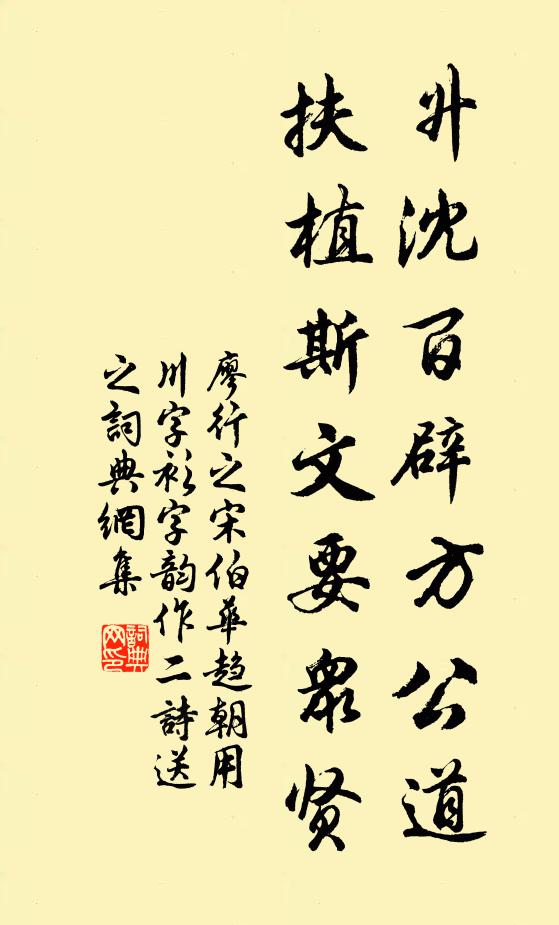 升沈百辟方公道
扶植斯文要衆贤
廖行之宋伯華趋朝用
川字衫字韵作二詩送
之詞典網集
詞典网印